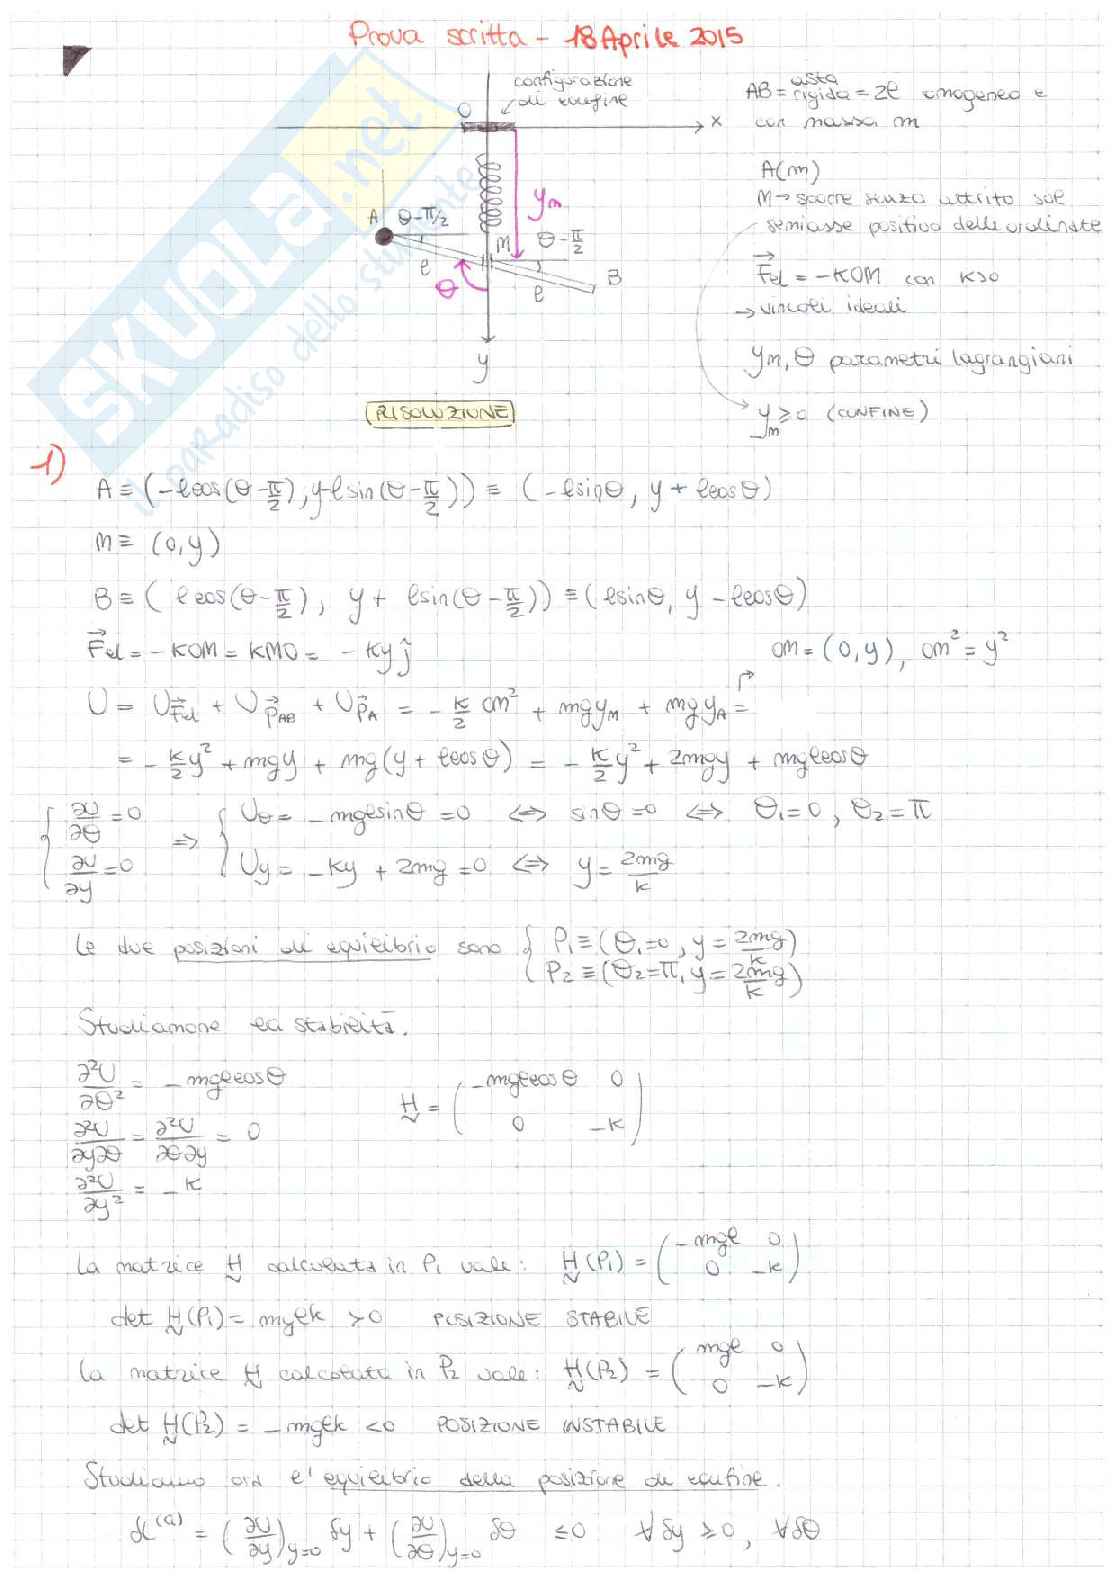 Prova scritta - 18 Aprile 2015
configurazione
di confine
O
x
A
θ-π/2
M
y_m
θ-π/2
B
l
θ
l
y
AB = asta rigida = 2l omogenea e
con massa m
A(m)
M → scorre senza attrito sul
semiasse positivo delle ordinate
F⃗el = -KOM con K>0
→ vincoli ideali
y_m, θ parametri lagrangiani
y_m ≥ 0 (CONFINE)
RISOLUZIONE
1)
A ≡ (-lcos(θ-π/2), y-lsin(θ-π/2)) ≡ (-lsinθ, y + lcosθ)
M ≡ (0,y)
B ≡ (lcos(θ-π/2), y + lsin(θ-π/2)) ≡ (lsinθ, y - lcosθ)
F⃗el = -KOM = KMO = -Ky ĵ
OM = (0,y), OM² = y²
U = U_F⃗el + U_p⃗AB + U_p⃗A = -K/2 OM² + mgy_M + mgy_A =
= -K/2 y² + mgy + mg(y + lcosθ) = -K/2 y² + 2mgy + mglcosθ
{ ∂U/∂θ = 0 ⇒ { Uθ = -mglsinθ = 0 ⇔ sinθ = 0 ⇔ θ₁=0, θ₂=π
∂U/∂y = 0 Uy = -Ky + 2mg = 0 ⇔ y = 2mg/K
Le due posizioni di equilibrio sono { P₁ ≡ (θ₁=0, y = 2mg/K)
P₂ ≡ (θ₂=π, y = 2mg/K)
Studiamone la stabilità.
∂²U/∂θ² = -mglcosθ
H = ( -mglcosθ 0
0 -K )
∂²U/∂y∂θ = ∂²U/∂θ∂y = 0
∂²U/∂y² = -K
La matrice H calcolata in P₁ vale: H(P₁) = ( -mgl 0
0 -K )
det H(P₁) = mglk > 0 POSIZIONE STABILE
La matrice H calcolata in P₂ vale: H(P₂) = ( mgl 0
0 -K )
det H(P₂) = -mglk < 0 POSIZIONE INSTABILE
Studiamo ora l'equilibrio della posizione di confine.
δL⁽ᵃ⁾ = (∂U/∂y)_y=0 δy + (∂U/∂θ)_y=0 δθ ≤ 0 ∀ δy ≥ 0, ∀ δθ
SKUOLA.net
il paradiso dello studente